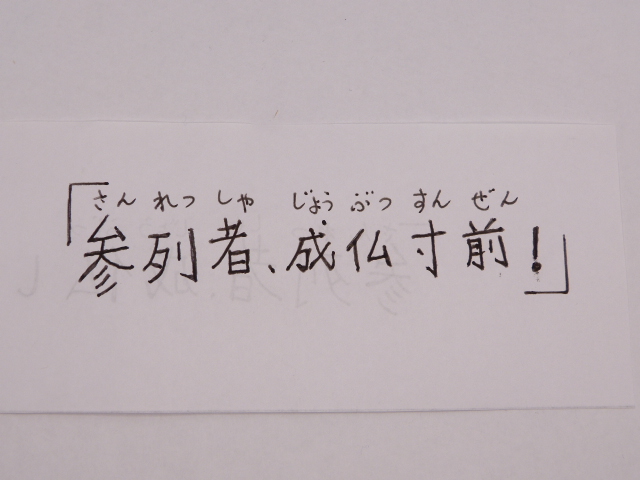 さんれつしゃ じょうぶつすんぜん
「参列者、成仏寸前!」